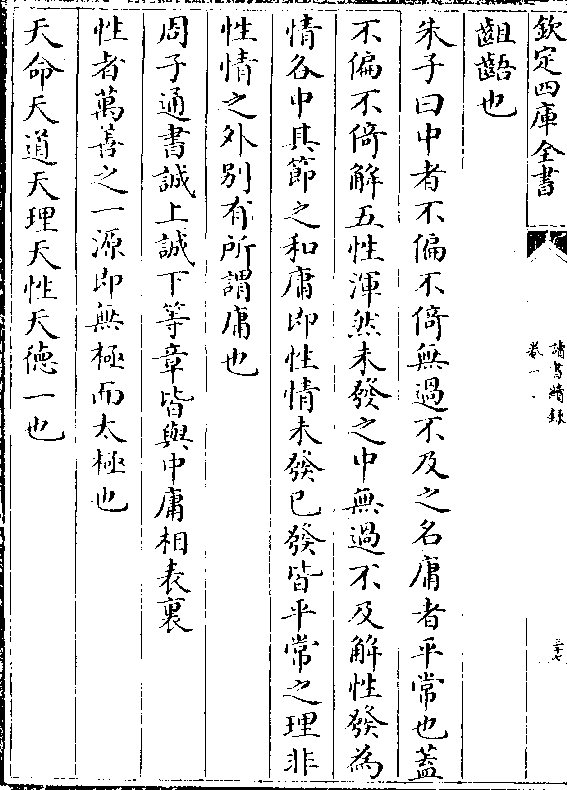 欽定四庫全書
讀書續錄
卷一
三十七
齟齬也
朱子曰中者不偏不倚無過不及之名庸者平常也蓋
不偏不倚解五性渾然未發之中無過不及解性發為
情各中其節之和庸即性情未發已發皆平常之理非
性情之外別有所謂庸也
周子通書誠上誠下等章皆與中庸相表裏
性者萬善之一源即無極而太極也
天命天道天理天性天德一也